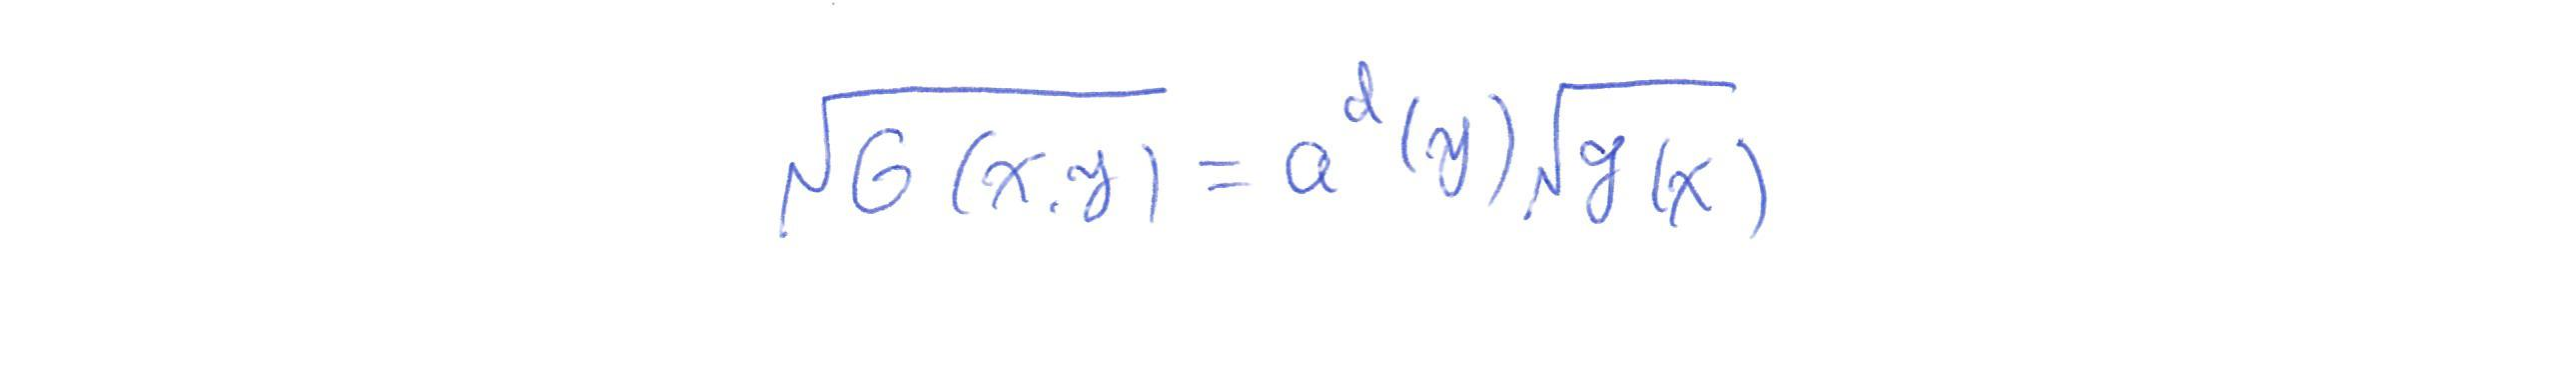 √G(x,y) = a^d(y)√g(x)